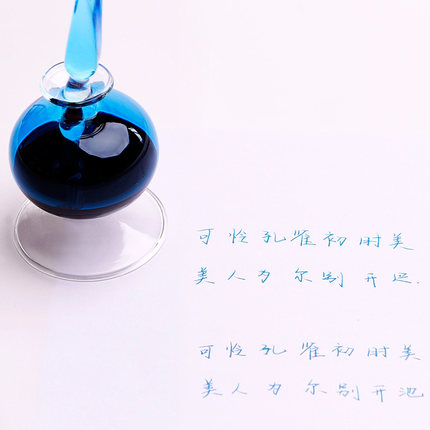 可怜孔雀初时美
美人为尔别开池.
可怜孔雀初时美
美人为尔别开池